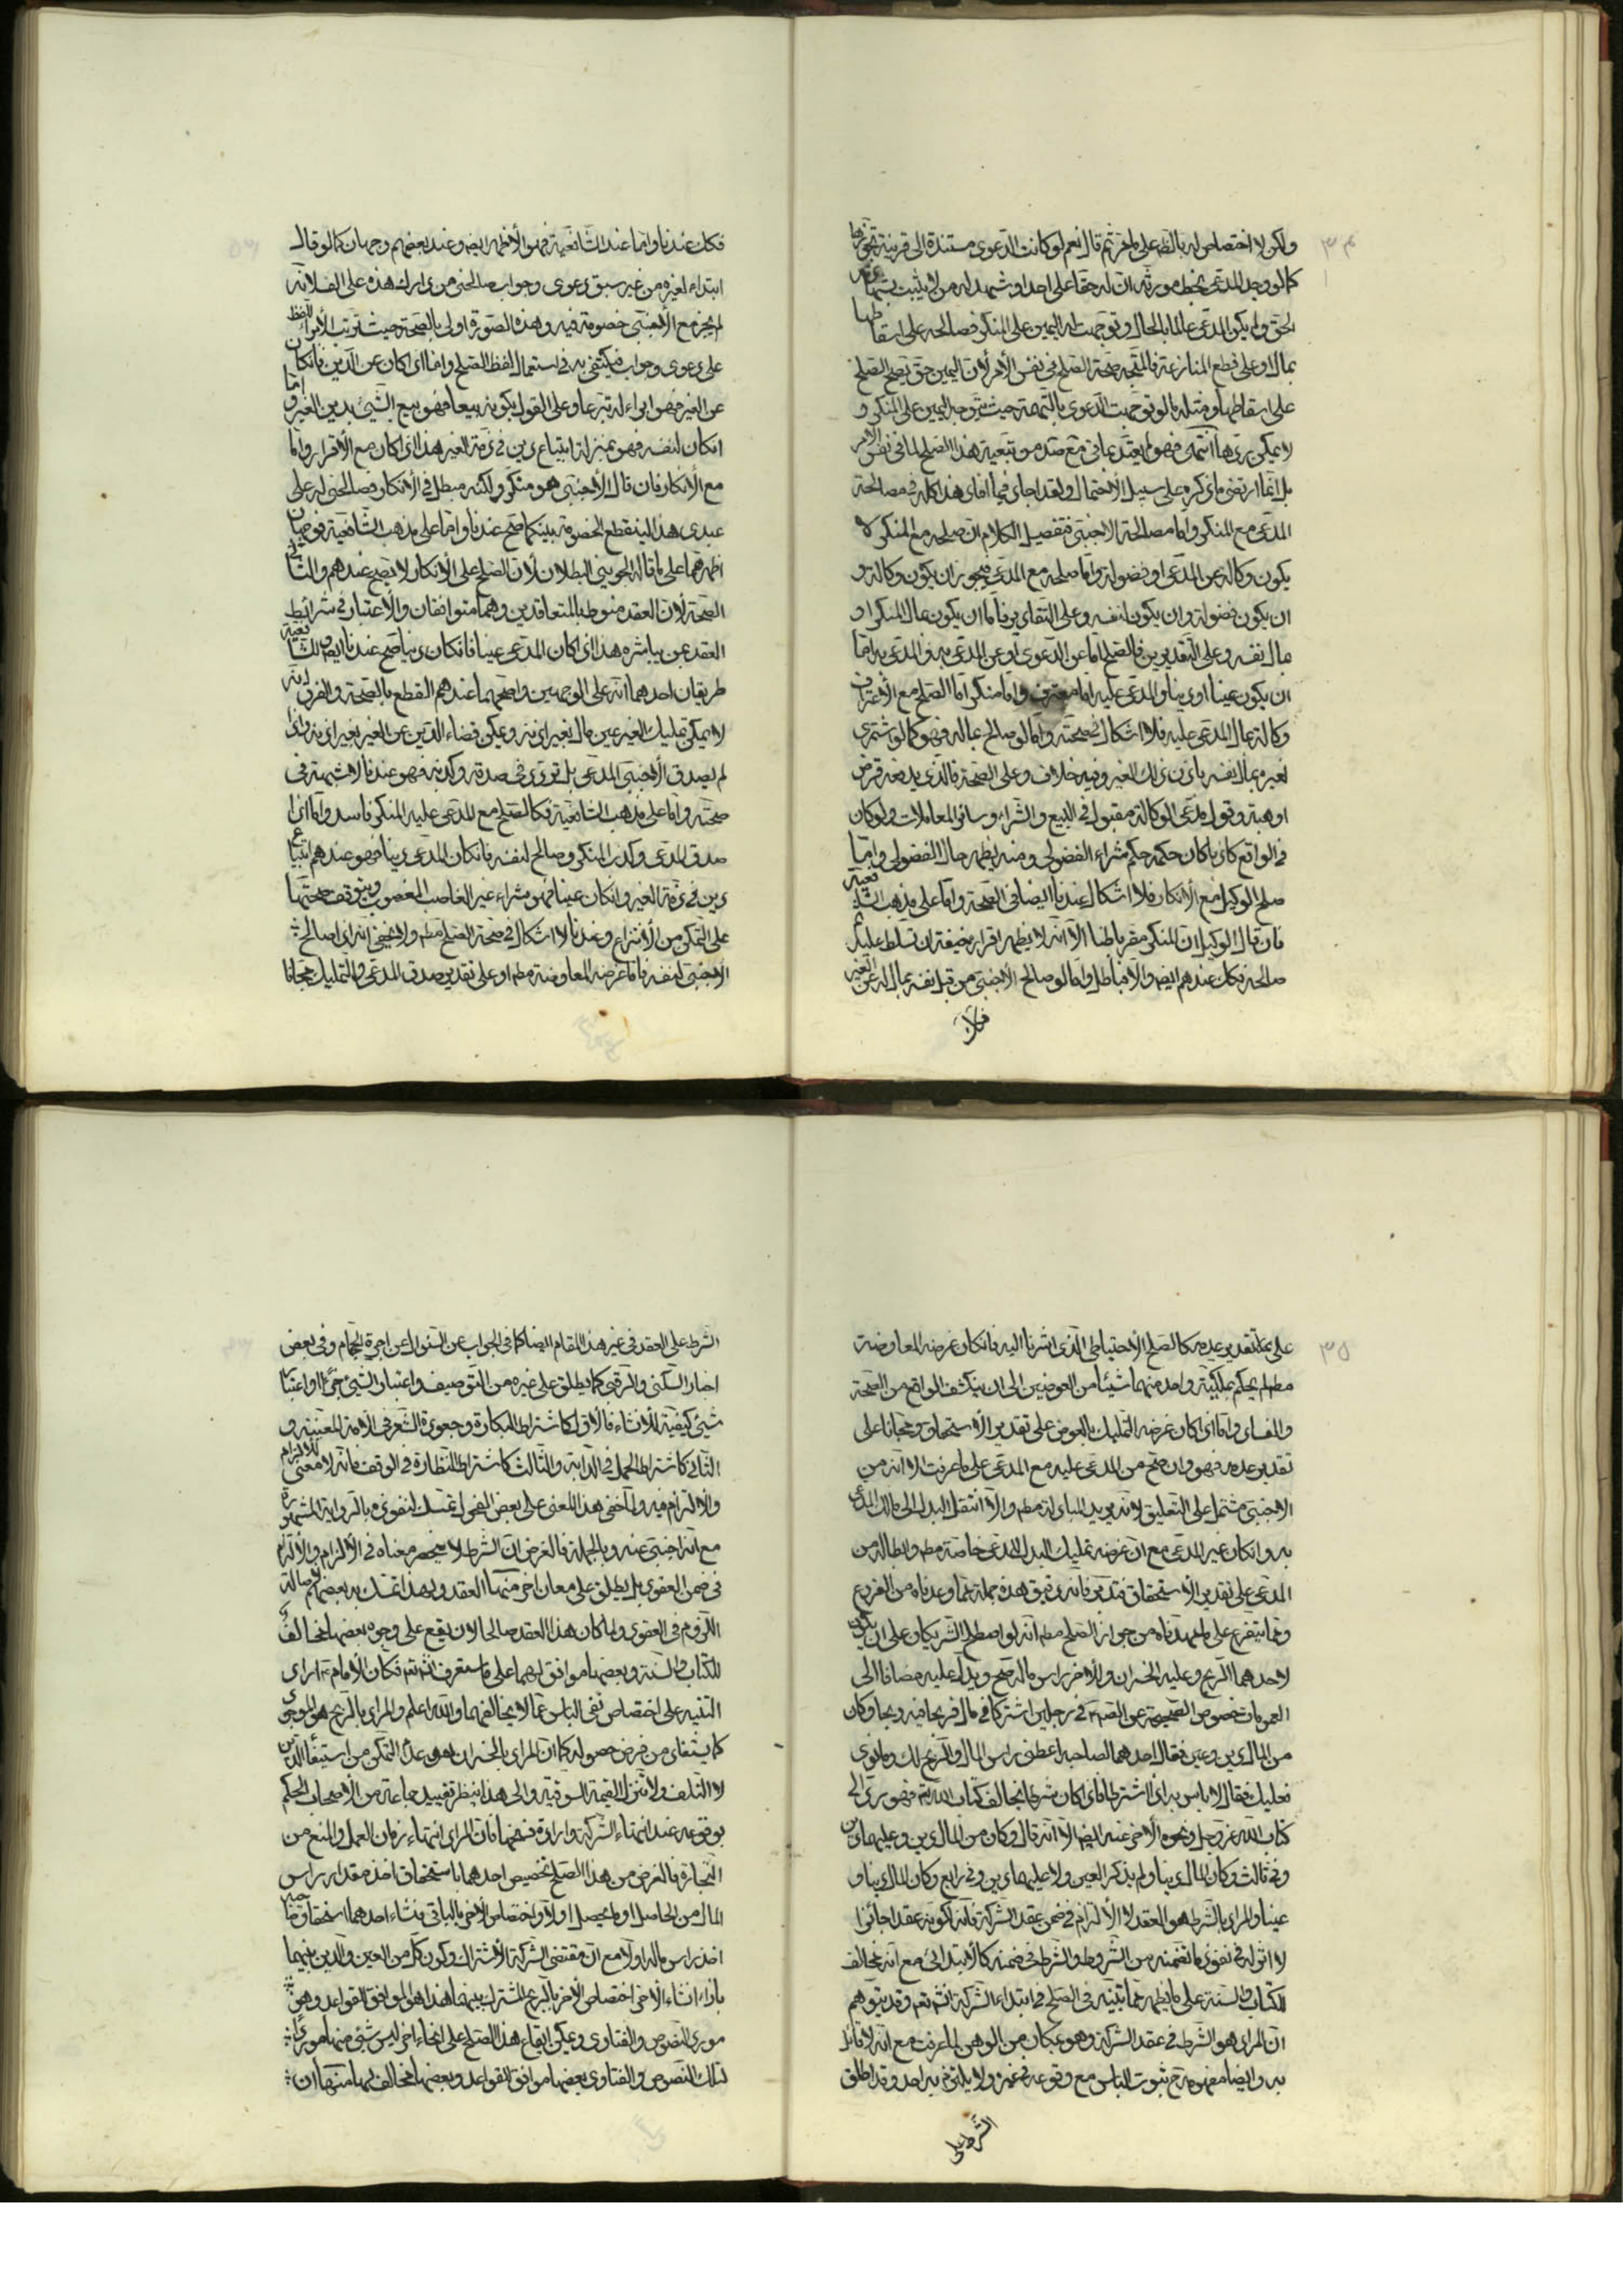 ٣٤
ولكن لا اختصاص له بالظ على ما خرثم قال نعم لو كانت الدعوى مستندة الى قرينة تجوزها
كما لو وجد المدعى بخط مورثه ان له حقا على احد او شهد له من لا يثبت بشهادته
الحق ولم يكن المدعى عالما بالحال وتوجهت له اليمين على المنكر فصالحه على اسقاطها
بمال او على قطع المنازعة فالمتجه صحة الصلح في نفس الأمر لأن اليمين حق يصح الصلح
على اسقاطها ومثله ما لو توجهت الدعوى بالتهمة حيث يتوجه اليمين على المنكر و
لا يمكن ردها انتهى فهو لم يعتد بما في صدره وتبعية هذا الصلح لما في نفس الأمر
بل انما ارتضى ما ذكره على سبيل الأحتمال ولقد اجاد فيما افاد هذا كله في مصالحة
المدعى مع المنكر واما مصالحة الاجنبى فتفصيل الكلام ان صلحه مع المنكر لا
يكون وكالة عن المدعى او فضولة واما صلحه مع المدعى فيجوز ان يكون وكالة و
ان يكون فضولة وان يكون لنفسه وعلى التقادير فاما ان يكون بمال المنكر او
مال نفسه وعلى التقديرين فالصلح اما عن الدعوى او عن المدعى به والمدعى به اما
ان يكون عينا او دينا والمدعى عليه اما معترف واما منكر اما الصلح مع الأعتراف
وكالة بمال المدعى عليه فلا اشكال في صحته واما لو صالح بماله فهو كما لو اشترى
لغيره بمال نفسه باذن ذلك الغير وفيه خلاف وعلى الصحة فالذى يدفعه قرض
او هبة وقول مدعى الوكالة مقبول في البيع والشراء وسائر المعاملات ولو كان
في الواقع كاذبا كان حكمه حكم شراء الفضولى ومنه يظهر حال الفضولى واما
صلح الوكيل مع الأنكار فلا اشكال عندنا ايضا في الصحة واما على مذهب الشافعية
فان قال الوكيل ان المنكر مقر باطنا الا انه لا يظهر اقراره خيفة ان تسلط عليه
صالحه فكك عندهم ايضا والا فباطل واما لو صالح الأجنبى من قبل نفسه بماله عن الغير
فكك
فكك عندنا واما عند الشافعية فهو الأظهر ايضا وعند بعضهم وجهان كما لو قال
ابتداء لغيره من غير سبق دعوى وجواب صالحنى من دارك هذه على الف لانه
لم يجز مع الأجنبى خصومة فيه وهذه الصورة اولى بالصحة حيث ترتب اللفظ
على دعوى وجواب فيكتفى به في استعمال لفظ الصلح واما اذا كان عن الدين فان كان
عن الغير فهو ابراء له تبرعا وعلى القول بكونه بيعا فهو بيع الشيئ بدين الغير واما
ان كان لنفسه فهو بمنزلة ابتياع دين في ذمة الغير هذا اذا كان مع الأقرار واما
مع الأنكار فان قال الأجنبى هو منكر ولكنه مبطل في الأنكار فصالحنى له على
عبدى هذا لينقطع الخصومة بينكما صح عندنا واما على مذهب الشافعية فوجهان
اظهرهما على ما قاله الجوينى البطلان لأن الصلح على الأنكار لا يصح عندهم والثانى
الصحة لأن العقد منوط بالمتعاقدين وهما متوافقان والأعتبار في شرائط
العقد بمن يباشره هذا اذا كان المدعى عينا فان كان دينا صح عندنا ايضا وللشافعية
طريقان احدهما انه على الوجهين واصحهما عندهم القطع بالصحة والفرق انه
لا يمكن تمليك الغير عين مال بغير اذنه ويمكن قضاء الدين عن الغير بغير اذنه واذا
لم يصدق الأجنبى المدعى بل تردد في صدقه وكذبه فهو عندنا لا شبهة في
صحته واما على مذهب الشافعية فكالصلح مع المدعى عليه المنكر فاسد واما اذا
صدق المدعى وكذب المنكر وصالح لنفسه فان كان المدعى دينا فهو عندهم ابتياع
دين في ذمة الغير وان كان عينا فهو شراء غير الغاصب المغصوب ويتوقف صحتها
على التمكن من الأنتزاع وعندنا لا اشكال في صحة الصلح مطم ولا يخفى انه اذا صالح
الأجنبى لنفسه فاما غرضه المعاوضة مطم او على تقدير صدق المدعى والتمليك مجانا
٣٥
على تقدير عدمه كالصلح الأحتياطى الذى اشرنا اليه فان كان غرضه المعاوضة
مطم لم يحكم بملكية واحد منهما شيئا من العوضين الى ان ينكشف الواقع من الصحة
والفساد واما اذا كان غرضه التمليك بالعوض على تقدير الأستحقاق ومجانا على
تقدير عدمه فهو وان صح من المدعى عليه مع المدعى على ما عرفت الا انه من
الاجنبى مشتمل على التعليق لانه يريد المبادلة مطم والا انتقل البدل الى مالك المدعى
به وان كان غير المدعى مع ان غرضه تمليك البدل للمدعى خاصة مطم وابطاله من
المدعى على تقدير الأستحقاق فتدبر فانه دقيق هذه جملة مما وعدناه من الفروع
ومما يتفرع على ما مهدناه من جواز الصلح مطم انه لو اصطلح الشريكان على ان يكون
لاحدهما الربح وعليه الخسران وللأخر راس ماله صح ويدل عليه مضافا الى
العمومات خصوص الصحيحة عن الصم في رجلين اشتركا في مال فربحا فيه ربحا وكان
من المال دين وعين فقال احدهما لصاحبه اعطنى راس المال والربح لك وما توى
فعليك فقال لا باس به اذا اشترط فاذا كان شرطا يخالف كتاب الله تم فهو رد الى
كتاب الله عز وجل ونحوه الأخر عنه ايضا الا انه قال وكان من المال دين وعليهما دين
وفي ثالث وكان المال دينا ولم يذكر العين ولا عليهما دين وفي رابع وكان المال دينا و
عينا والمراد بالشرط هو العقد لا الألتزام في ضمن عقد الشركة فانه لكونه عقدا جائزا
لا اثر له في نفوذ ما تضمنه من الشروط والشرط في ضمنه كالأبتدائى مع انه مخالف
للكتاب والسنة على ما يظهر مما نبينه في الصلح في ابتداء الشركة انشاء تعم وقد يتوهم
ان المراد هو الشرط في عقد الشركة وهو بمكان من الوهن لما عرفت مع انه لا قائل
به وايضا مفهومه ح ثبوت الباس مع وقوعه في غيره ولا يلتزم به احد وقد اطلق
الشرط على
الشرط على العقد في غير هذا المقام ايضا كما في الجواب عن السئوال عن اجرة الحمام وفي بعض
اخبار السكنى والرقبى كما يطلق على غيره من التوصيف واعتبار الشيئ جزءا او اعتبار
شيئ كيفية للأنشاء فالاول كاشتراط البكارة وجعودة الشعر في الأمة المعينة و
الثانى كاشتراط الحمل في الدابة والثالث كاشتراط النظارة في الوقف فانه لا معنى للالزام
والألتزام فيه ولما خفى هذا المعنى على بعض الفحول تمسك لنفوذه بالرواية المشهورة
مع انه اجنبى عنه وبالجملة فالغرض ان الشرط لا ينحصر معناه في الألزام والألتزام
في ضمن العقود بل يطلق على معان اخر منها العقد ولهذا تمسك به بعضهم لأصالة
اللزوم في العقود ولما كان هذا العقد صالحا لان يقع على وجوه بعضها مخالف
للكتاب والسنة وبعضها موافق لهما على ما ستعرف انشاء تعم فكان الأمام ع اراد
التنبيه على اختصاص نفى الباس بما لا يخالفهما والله اعلم والمراد بالربح هو الموجود
كما يستفاد من فرض حصوله كما ان المراد بالخسران عدم التمكن من استيفاء الدين
لا التلف ولا تنزل القيمة السوقية والى هذا ينظر تقييد جماعة من الأصحاب الحكم
بوقوعه عند انتهاء الشركة وارادة فسخها فان المراد انتهاء زمان العمل والمنع من
التجارة فالغرض من هذا الصلح تخصيص احدهما باستحقاق اخذ مقدار راس
المال من الحاصل او ما يحصل اولا واختصاص الأخر بالباقى فنشاء احدهما استحقاق صاحبه
اخذ راس ماله اولا مع ان مقتضى الشركة الأشتراك وكون كل من العين والدين بينهما
بازاء انشاء الأخر اختصاص الأخر بالربح المشترك بينهما هذا هو الموافق للقواعد وهو
مورد النصوص والفتاوى ويمكن ايقاع هذا الصلح على انحاء اخر ليس شئ منها موردا
لتلك النصوص والفتاوى بعضها موافق القواعد وبعضها مخالف لها منها ان